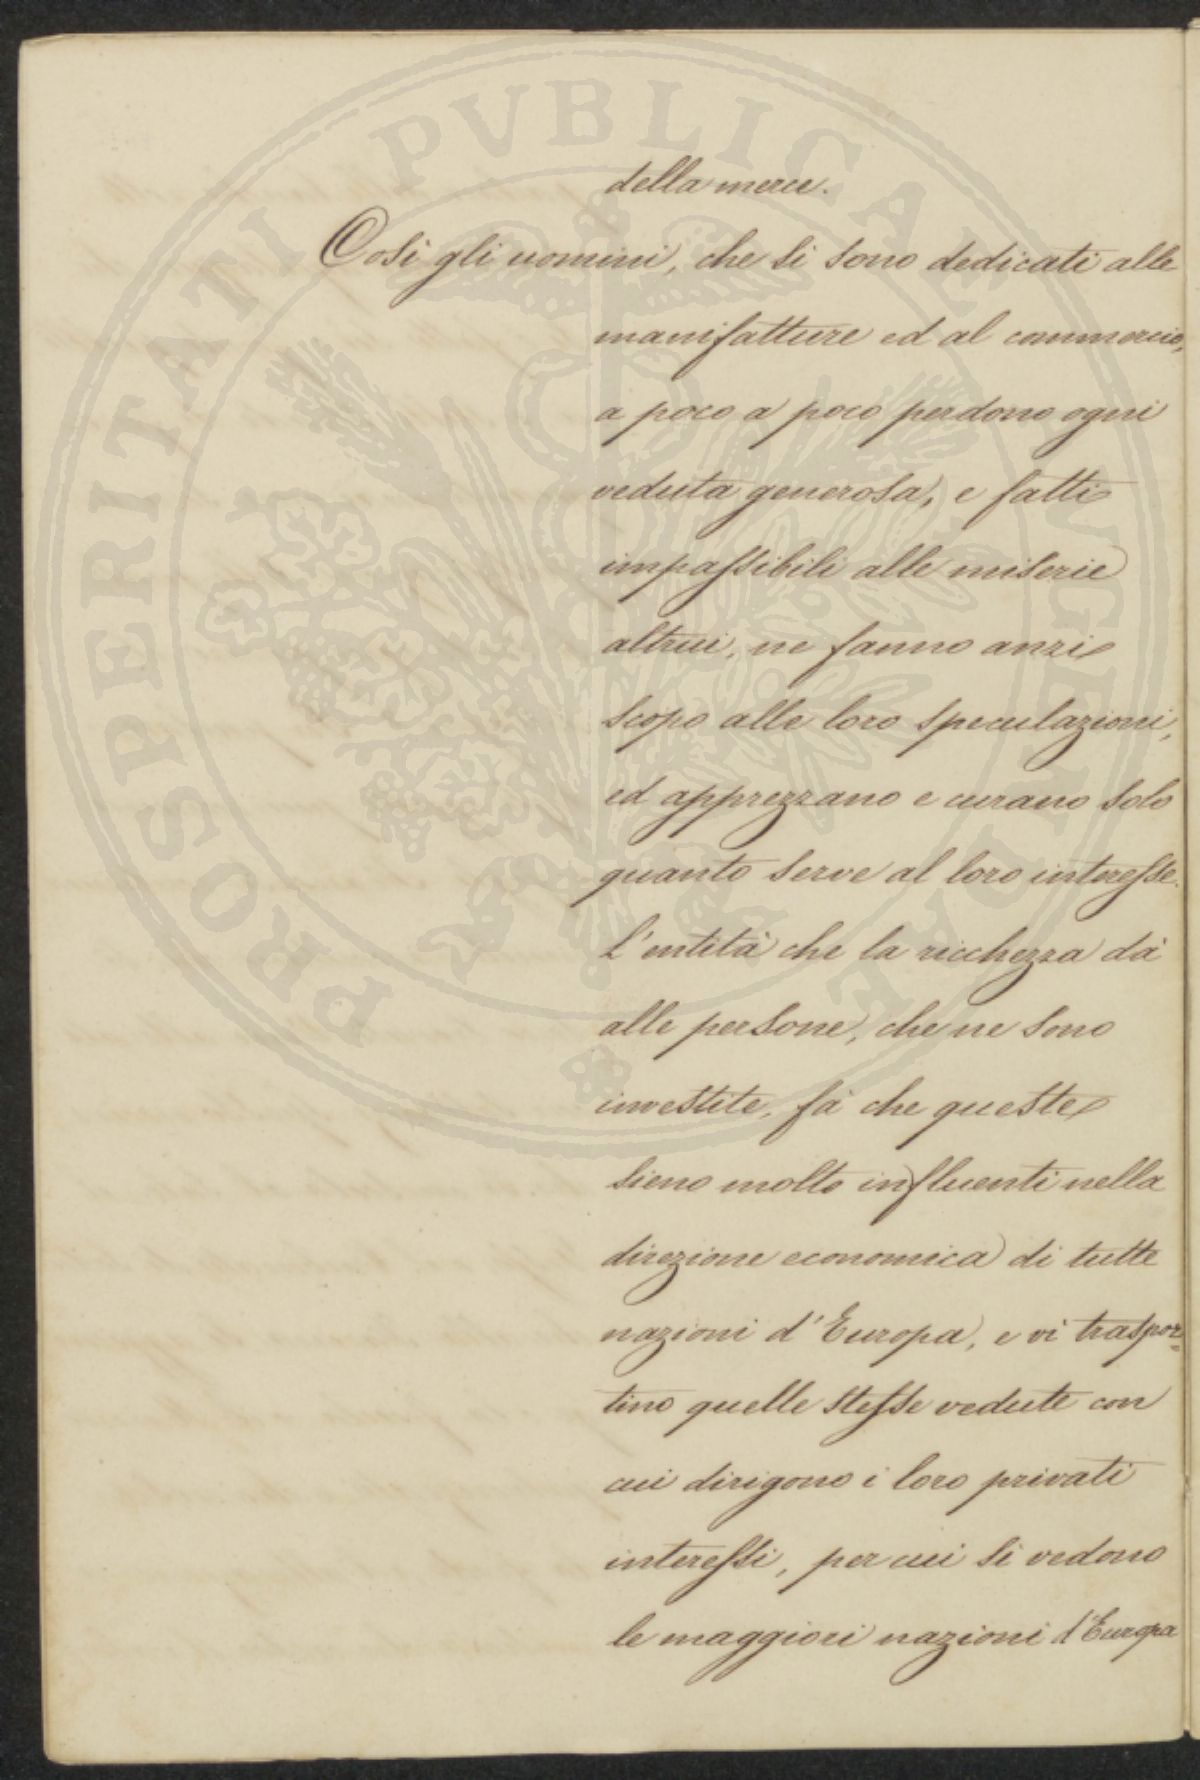 della merce.
Così gli uomini, che si sono dedicati alle
manifatture ed al commercio,
a poco a poco perdono ogni
veduta generosa, e fatti
impassibili alle miserie
altrui, ne fanno anzi
scopo alle loro speculazioni,
ed apprezzano e curano solo
quanto serve al loro interesse.
L'entità che la ricchezza dà
alle persone, che ne sono
investite, fà che queste
sieno molto influenti nella
direzione economica di tutte
nazioni d'Europa, e vi traspor=
tino quelle stesse vedute con
cui dirigono i loro privati
interessi, per cui si vedono
le maggiori nazioni d'Europa
PROSPERITATI PVBLICAE AVGENDAE